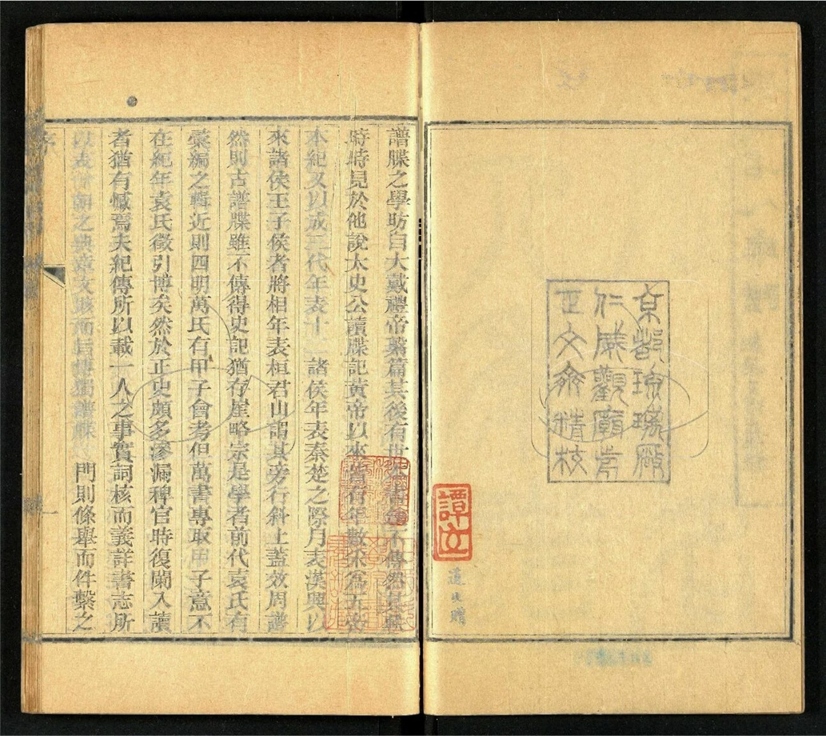 京都琉璃厰
仁威觀廟前
正文齋精校
譚
遵 贈
譜牒之學昉自大戴禮帝繫篇其後有世
時時見於他說太史公讀牒記黃帝以來皆有年數采為五帝
本紀又以成三代年表十二諸侯年表秦楚之際月表漢興以
來諸侯王子侯者將相年表桓君山謂其旁行斜上蓋效周譜
然則古譜牒雖不傳得史記猶存崖略宗是學者前代袁氏有
彙編之輯近則四明萬氏有甲子會考但萬書專取甲子意不
在紀年袁氏徵引博矣然於正史頗多滲漏稗官時復闌入讀
者猶有憾焉夫紀傳所以載一人之事實詞核而義詳書志所
以 朝之典章文 而 門則條舉而件繫之
序